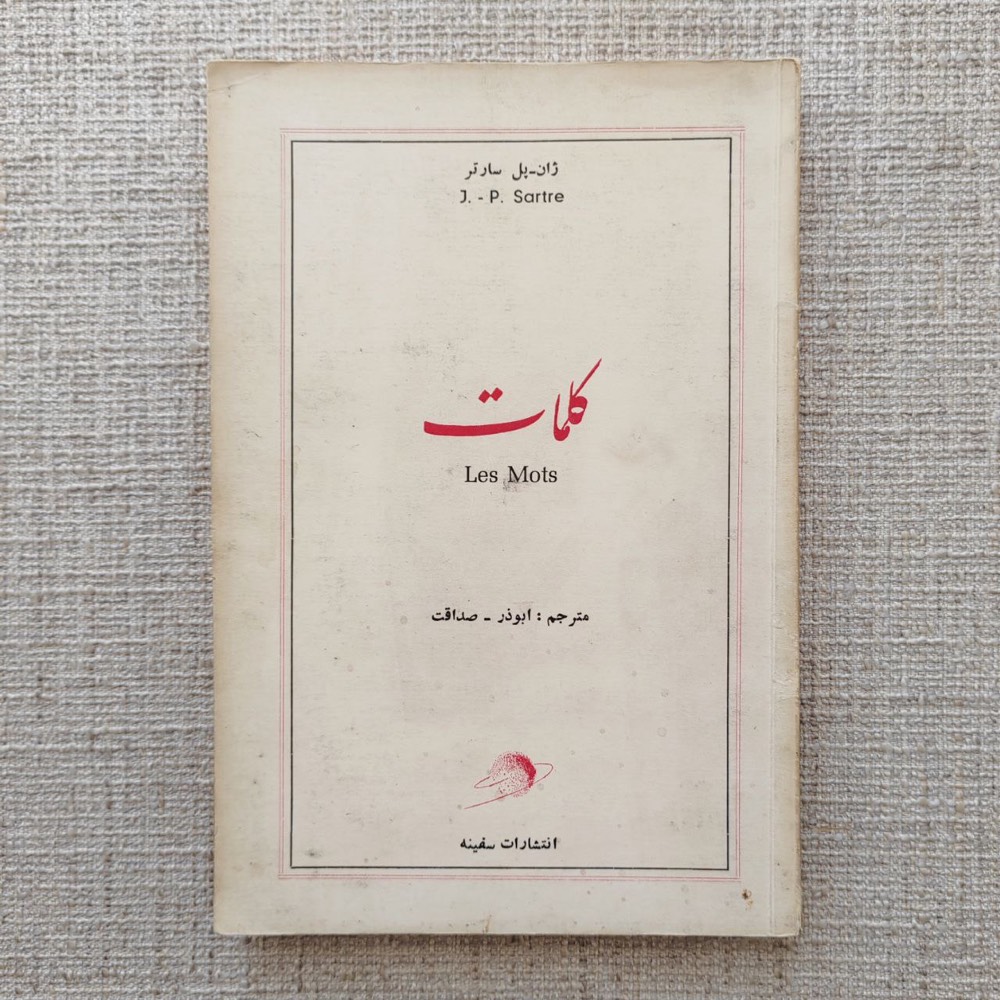 ژان-پل سارتر
J. - P. Sartre
کلمات
Les Mots
مترجم : ابوذر - صداقت
انتشارات سفینه